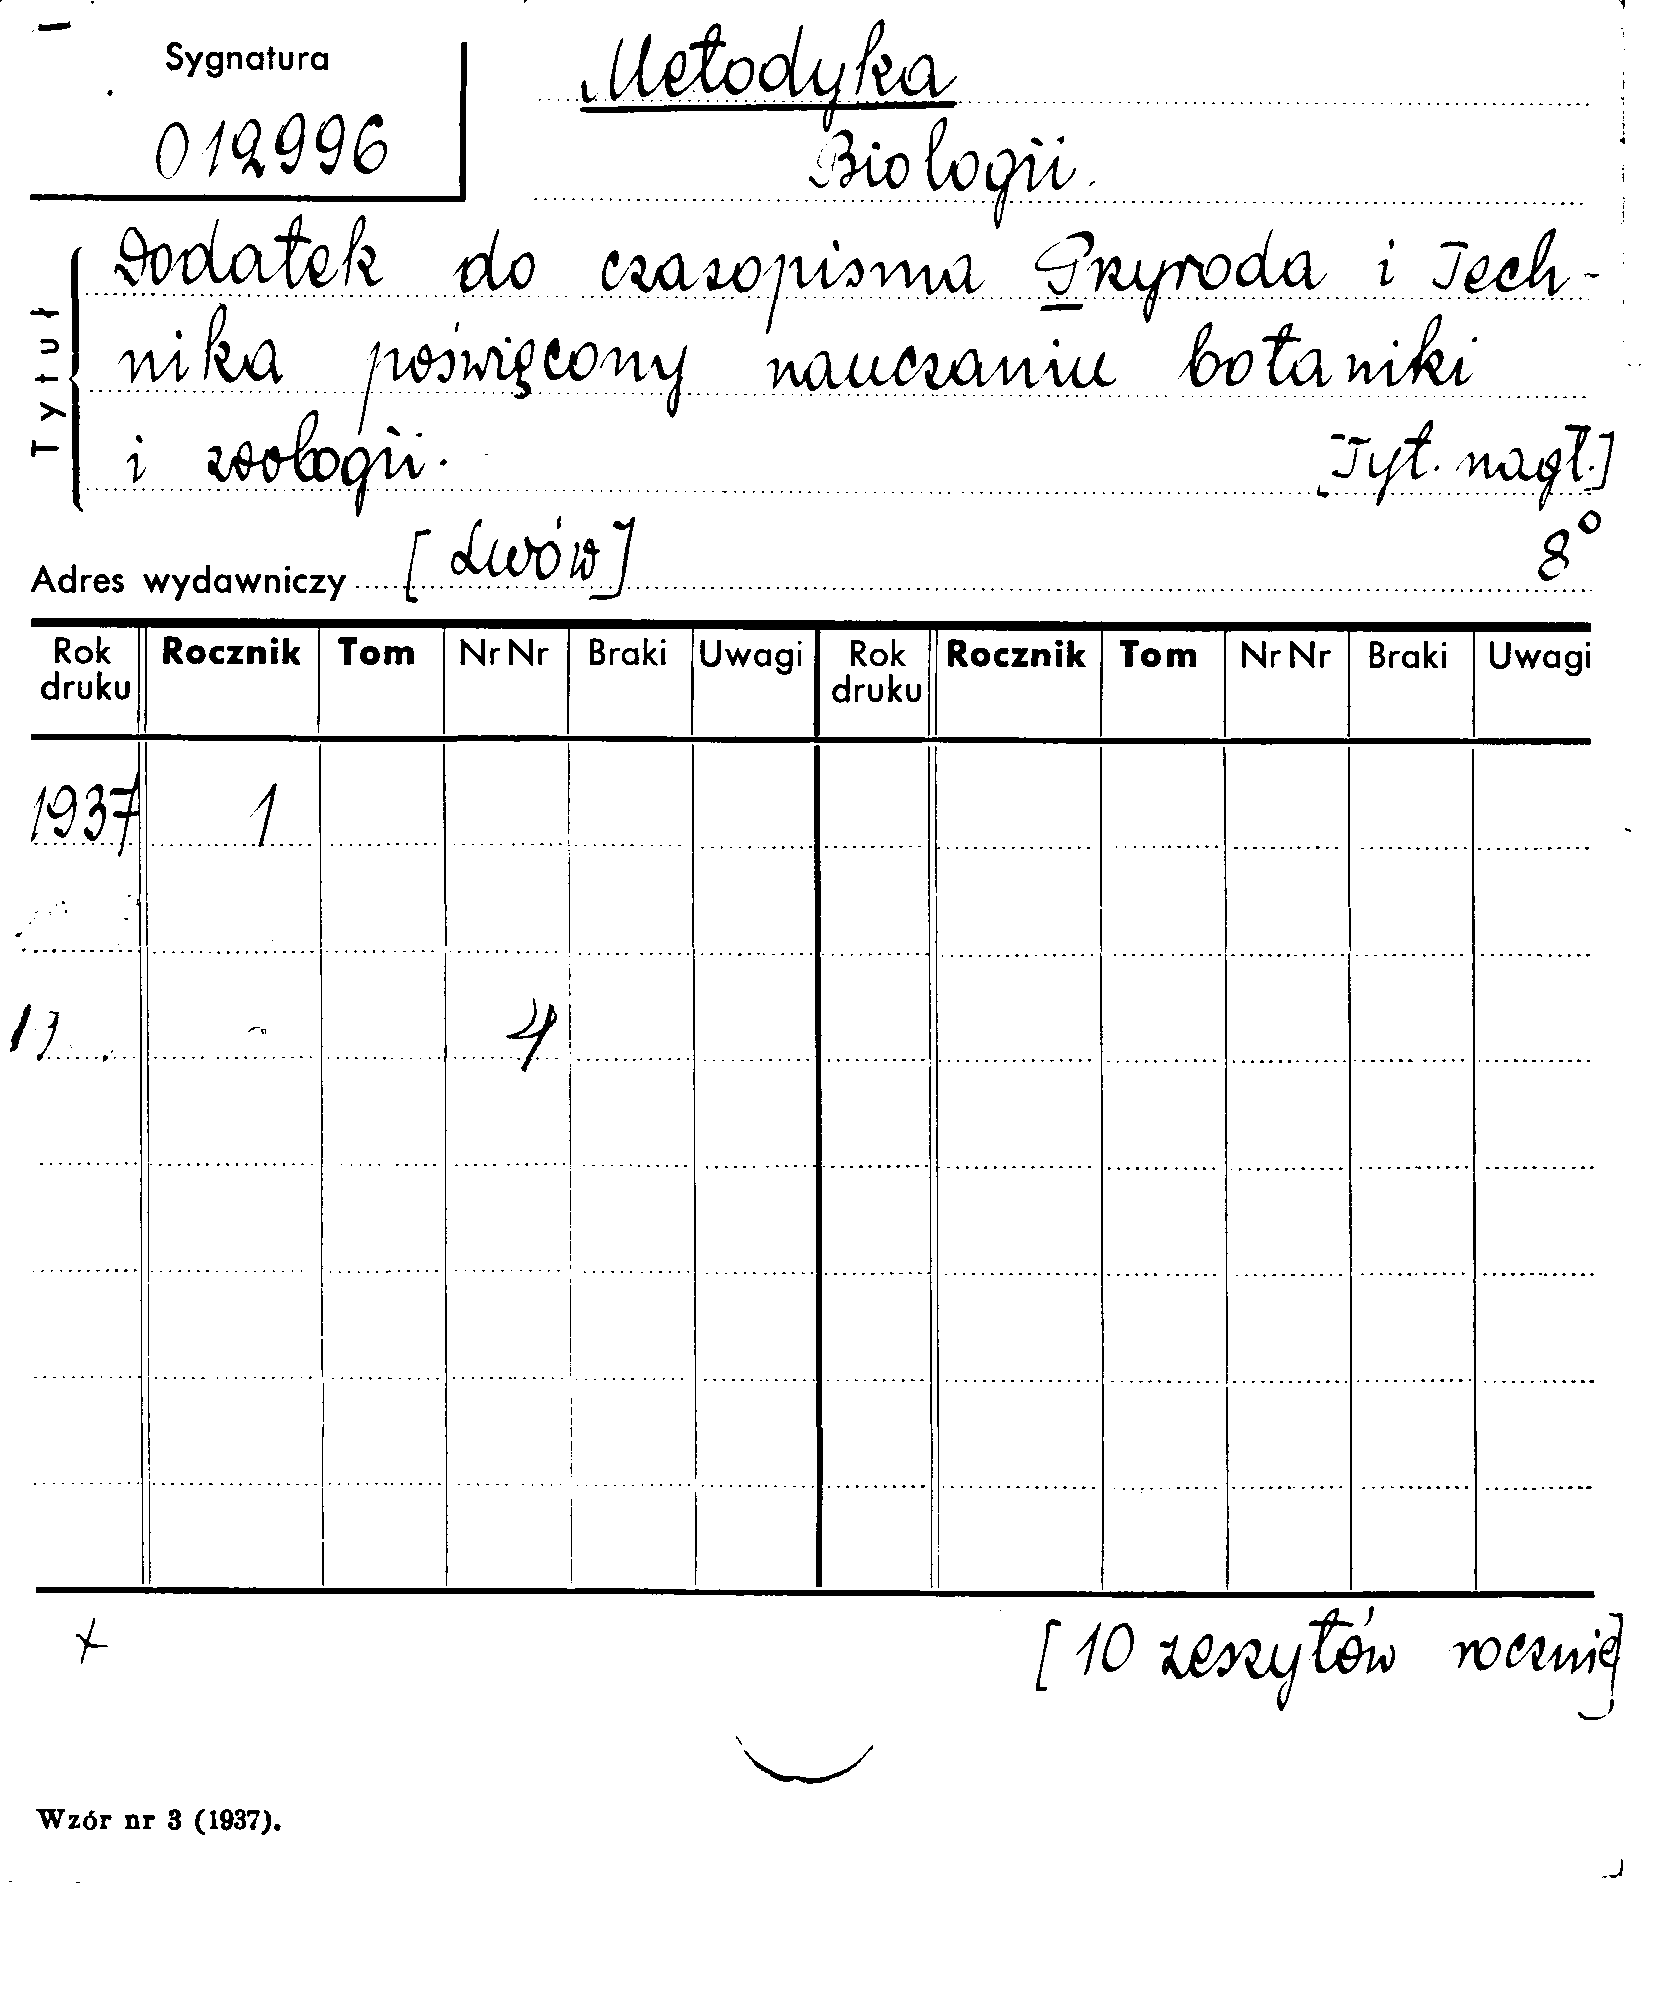 Sygnatura
012996
Metodyka
Biologii.
Tytuł
Dodatek do czasopisma Przyroda i Tech-
nika poświęcony nauczaniu botaniki
i zoologii.
[Tyt. nagł.]
Adres wydawniczy [Lwów] 8°
Rok druku Rocznik Tom Nr Nr Braki Uwagi Rok druku Rocznik Tom Nr Nr Braki Uwagi
1937 1
4
[10 zeszytów rocznie]
Wzór nr 3 (1937).